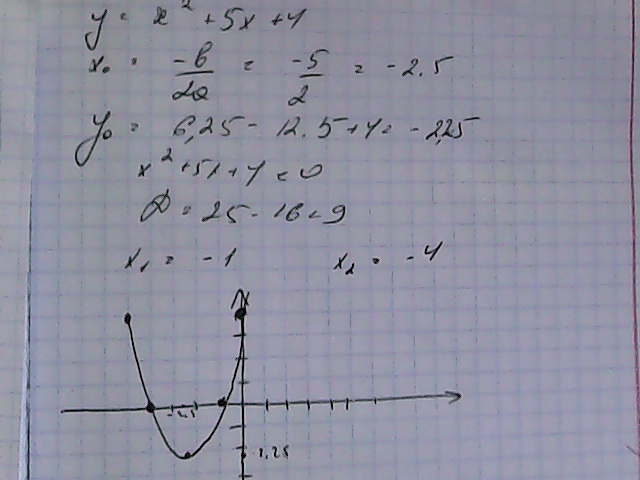 y = x² + 5x + 4
x₀ = -b/2a = -5/2 = -2.5
y₀ = 6,25 - 12.5 + 4 = -2,25
x² + 5x + 4 = 0
D = 25 - 16 = 9
x₁ = -1 x₂ = -4
-2,5